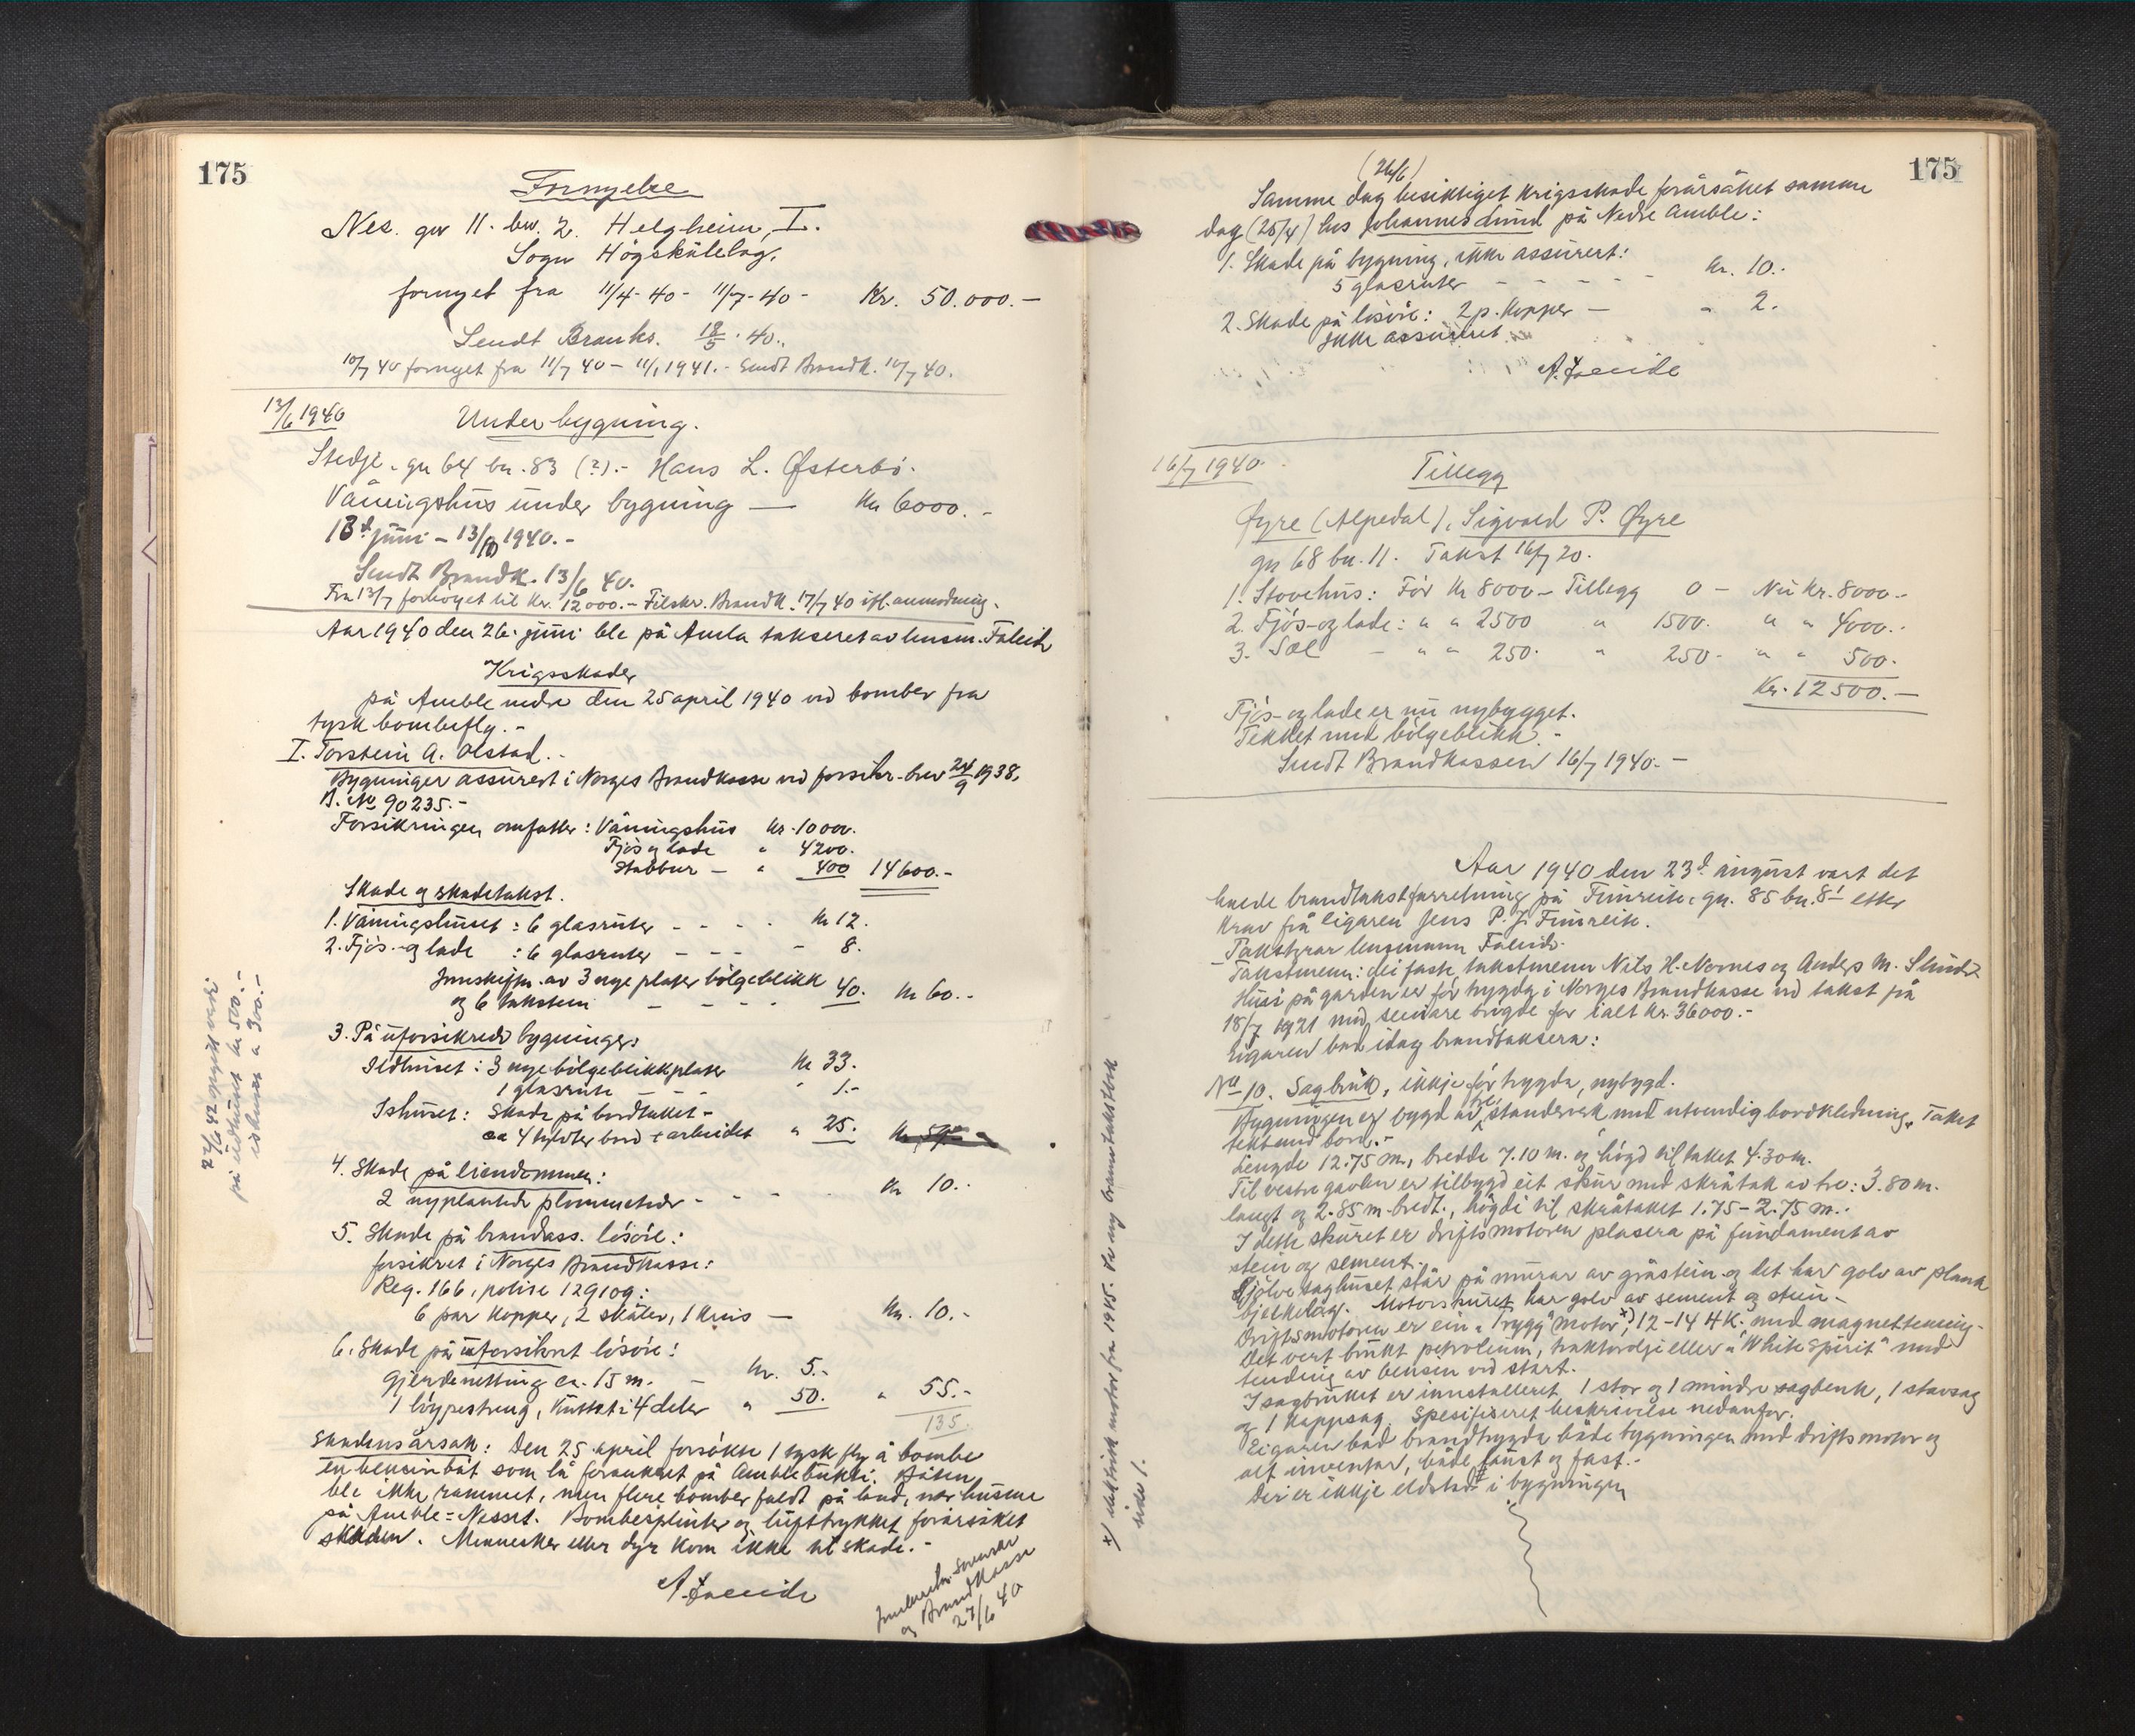 175
Fornyelse
Nes. gnr 11. bnr. 2. Helgheim, I.
Sogn Högskülelag.
fornyet fra 11/4-40 - 11/7-40 - Kr. 50.000.-
Sendt Brandks. 18/5 - 40.
10/7 40 fornyet fra 11/7 40 - 11/1 1941. - Sendt Brandk. 10/7 40.
13/6 1940 Under bygning.
Stedje. gn 64 bn. 83 (?).- Hans L. Østerbö.
Våningshüs ünder bygning — Kr 6000.-
13d jüni - 13/ 1940.-
Sendt Brandk. 13/6 40.
Fra 13/7 forhöyet til kr. 12000.- Tilskr. Brandk. 17/7 40 ifl. anmodning.
Aar 1940 den 26. jüni ble på Amla taksert av lensm. Faleide
Krigsskader
på Amble nedre den 25 april 1940 ved bomber fra
tysk bombefly.-
I. Torstein A. Olstad.-
Bygninger assürert i Norges Brandkasse ved forsikr.-brev 24/9 1938,
B. No 90235.-
Forsikringen omfatter: Våningshüs kr. 10000.
Fjös og lade " 4200.
Stabbur - " 400 14600.-
Skade og skadetakst.
1. Våningshüset: 6 glasrüter - - - kr 12.
2. Fjös- og lade : 6 glasrüter - - - - 8.
Innskiftn. av 3 nye plater bölgeblikk
og 6 takstein - - - - 40. kr 60.-
3. På üforsikrede bygninger:
Ildhüset: 3 nye bölgeblikkplater kr 33.
1 glasrüte - - " 1.-
Ishüset: Skade på bordtaket -
ca 4 tylvter bord + arbeidet " 25.
4. Skade på eiendommen:
2 nyplantede plommetrær - - - - kr 10.-
5. Skade på brandass. lösöre:
forsikret i Norges Brandkasse:
Reg. 166, polise 129109:
6 par kopper, 2 skåler, 1 krüs — kr. 10.-
6. Skade på üforsikret lösöre:
Gjerdenetting ca. 15 m. - kr. 5.-
1 löypestreng, küttet i 4 deler " 50. " 55.-
135.
Skadens årsak: Den 25 april forsökte 1 tysk fly å bombe
en bensinbåt som lå forankret på Amblebükti. Båten
ble ikke rammet, men flere bomber faldt på land, nær hüsene
på Amble-Nesset. Bombesplinter og lüfttrykket forårsaket
skaden. Mennesker eller dyr kom ikke til skade.-
A. Faleide
og Brandkasse
27/6 40
22/6 42
på ildhüset kr 500.-
ishüset " 300.-
175
(26/6)
Samme dag besiktiget krigsskade forårsaket samme
dag (25/4) hos Johannes Lünd på Nedre Amble:
1. Skade på bygning, ikke assürert:
5 glasrüter - - - - kr. 10.-
2. Skade på lösöre: 2 p. kopper — " 2.
ikke assürert.
A. Faleide
16/7 1940. Tillegg
Øyre (Alpedal), Sigvald P. Øyre
gn 68 bn. 11. Takst 16/7 20.
1. Stovehüs: För Kr 8000 - Tillegg 0 - Nü Kr. 8000.-
2. Fjös- og lade: " " 2500 " 1500. " " 4000.-
3. Sel - " " 250. " 250. " " 500.
Kr. 12500.-
Fjös- og lade er nü nybygget.
Tekket med bölgeblikk.-
Sendt Brandkassen 16/7 1940.-
Aar 1940 den 23d aügüst vart det
halde brandtakstforretning på Fimreite, gn. 85 bn. 8 etter
krav frå eigaren Jens P. J. Fimreite.
Takstyrar lensmann Faleide.
Takstmenn: dei faste takstmenn Nils H. Nornes og Anders M. Slinde
Hüsi på garden er för trygda i Norges Brandkasse ved takst på
18/7 1921 med seinare brigde for ialt kr. 36000.-
Eigaren bad idag brandtaksera:
No 10. Sagbrük, ikkje för trygda, nybygd.
Bygningen er bygd av tre, standerverk med utvendig bordkledning. Taket
tekt med bord.-
Lengde 12.75 m, bredde 7.10 m. og högd til taket 4.30 m.
Til vestre gavlen er tilbygd eit skür med skråtak av tre: 3.80 m.
langt og 2.85 m. bredt, högdi til skråtaket 1.75 - 2.75 m.
I dette sküret er driftsmotoren plasera på fündament av
stein og sement.
Sjölve saghüset står på mürar av gråstein og det har golv av plank
bjelkelag. Motorsküret har golv av sement og stein.-
Driftsmotoren er ein "Trygg" motor x), 12-14 HK. med magnettening.
Det vert brükt petroleüm, traktorolje eller "White Spirit" med
tending av bensin ved start.
I sagbrüket er innstalleret 1 stor og 1 mindre sagbenk, 1 stavsag
og 1 kappsag. Spesifiseret beskrivelse nedanfor.
Eigaren bad brandtrygda både bygningen med driftsmotor og
alt inventar, både laüst og fast.-
Der er ikkje eldstad i bygningen
x) elektrisk motor fra 1945. Se ny branntakstbok
side 1.